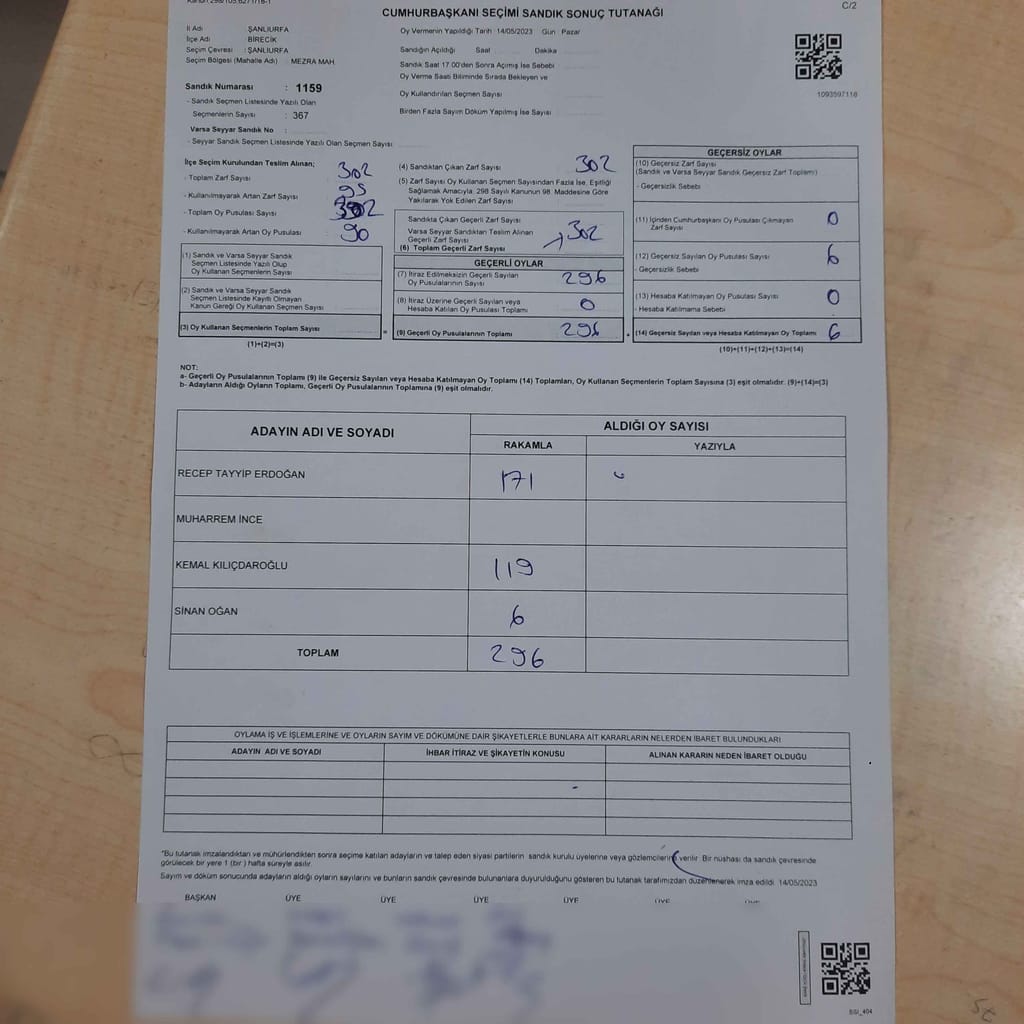 C/2
CUMHURBAŞKANI SEÇİMİ SANDIK SONUÇ TUTANAĞI
İl Adı : ŞANLIURFA
İlçe Adı : BİRECİK
Seçim Çevresi : ŞANLIURFA
Seçim Bölgesi (Mahalle Adı) : MEZRA MAH.
Sandık Numarası : 1159
- Sandık Seçmen Listesinde Yazılı Olan
Seçmenlerin Sayısı : 367
Varsa Seyyar Sandık No :
- Seyyar Sandık Seçmen Listesinde Yazılı Olan Seçmen Sayısı
Oy Vermenin Yapıldığı Tarih 14/05/2023 Gün Pazar
Sandığın Açıldığı Saat Dakika
Sandık Saat 17.00'den Sonra Açılmış İse Sebebi
Oy Verme Saati Bitiminde Sırada Bekleyen ve
Oy Kullandırılan Seçmen Sayısı
Birden Fazla Sayım Döküm Yapılmış İse Sayısı
1093597118
İlçe Seçim Kurulundan Teslim Alınan;
- Toplam Zarf Sayısı 302
- Kullanılmayarak Artan Zarf Sayısı 95
- Toplam Oy Pusulası Sayısı 302
- Kullanılmayarak Artan Oy Pusulası 90
(1) Sandık ve Varsa Seyyar Sandık
Seçmen Listesinde Yazılı Olup
Oy Kullanan Seçmenlerin Sayısı
(2) Sandık ve Varsa Seyyar Sandık
Seçmen Listesinde Kayıtlı Olmayan
Kanun Gereği Oy Kullanan Seçmen Sayısı
(3) Oy Kullanan Seçmenlerin Toplam Sayısı =
(1)+(2)=(3)
(4) Sandıktan Çıkan Zarf Sayısı 302
(5) Zarf Sayısı Oy Kullanan Seçmen Sayısından Fazla İse, Eşitliği
Sağlamak Amacıyla; 298 Sayılı Kanunun 98. Maddesine Göre
Yakılarak Yok Edilen Zarf Sayısı
Sandıkta Çıkan Geçerli Zarf Sayısı
Varsa Seyyar Sandıktan Teslim Alınan
Geçerli Zarf Sayısı
(6) Toplam Geçerli Zarf Sayısı 302
GEÇERLİ OYLAR
(7) İtiraz Edilmeksizin Geçerli Sayılan
Oy Pusulalarının Sayısı 296
(8) İtiraz Üzerine Geçerli Sayılan veya
Hesaba Katılan Oy Pusulası Toplamı 0
(9) Geçerli Oy Pusulalarının Toplamı 296
GEÇERSİZ OYLAR
(10) Geçersiz Zarf Sayısı
(Sandık ve Varsa Seyyar Sandık Geçersiz Zarf Toplamı)
- Geçersizlik Sebebi
(11) İçinden Cumhurbaşkanı Oy Pusulası Çıkmayan
Zarf Sayısı 0
(12) Geçersiz Sayılan Oy Pusulası Sayısı 6
- Geçersizlik Sebebi
(13) Hesaba Katılmayan Oy Pusulası Sayısı 0
- Hesaba Katılmama Sebebi
(14) Geçersiz Sayılan veya Hesaba Katılmayan Oy Toplamı 6
(10)+(11)+(12)+(13)=(14)
NOT:
a- Geçerli Oy Pusulalarının Toplamı (9) ile Geçersiz Sayılan veya Hesaba Katılmayan Oy Toplamı (14) Toplamları, Oy Kullanan Seçmenlerin Toplam Sayısına (3) eşit olmalıdır. (9)+(14)=(3)
b- Adayların Aldığı Oyların Toplamı, Geçerli Oy Pusulalarının Toplamına (9) eşit olmalıdır.
ADAYIN ADI VE SOYADI
ALDIĞI OY SAYISI
RAKAMLA YAZIYLA
RECEP TAYYİP ERDOĞAN 171
MUHARREM İNCE
KEMAL KILIÇDAROĞLU 119
SİNAN OĞAN 6
TOPLAM 296
OYLAMA İŞ VE İŞLEMLERİNE VE OYLARIN SAYIM VE DÖKÜMÜNE DAİR ŞİKAYETLERLE BUNLARA AİT KARARLARIN NELERDEN İBARET BULUNDUKLARI
ADAYIN ADI VE SOYADI İHBAR İTİRAZ VE ŞİKAYETİN KONUSU ALINAN KARARIN NEDEN İBARET OLDUĞU
*Bu tutanak imzalandıktan ve mühürlendikten sonra seçime katılan adayların ve talep eden siyasi partilerin sandık kurulu üyelerine veya gözlemcilerine verilir. Bir nüshası da sandık çevresinde
görülecek bir yere 1 (bir ) hafta süreyle asılır.
Sayım ve döküm sonucunda adayların aldığı oyların sayılarını ve bunların sandık çevresinde bulunanlara duyurulduğunu gösteren bu tutanak tarafımızdan düzenlenerek imza edildi. 14/05/2023
BAŞKAN ÜYE ÜYE ÜYE ÜYE ÜYE ÜYE